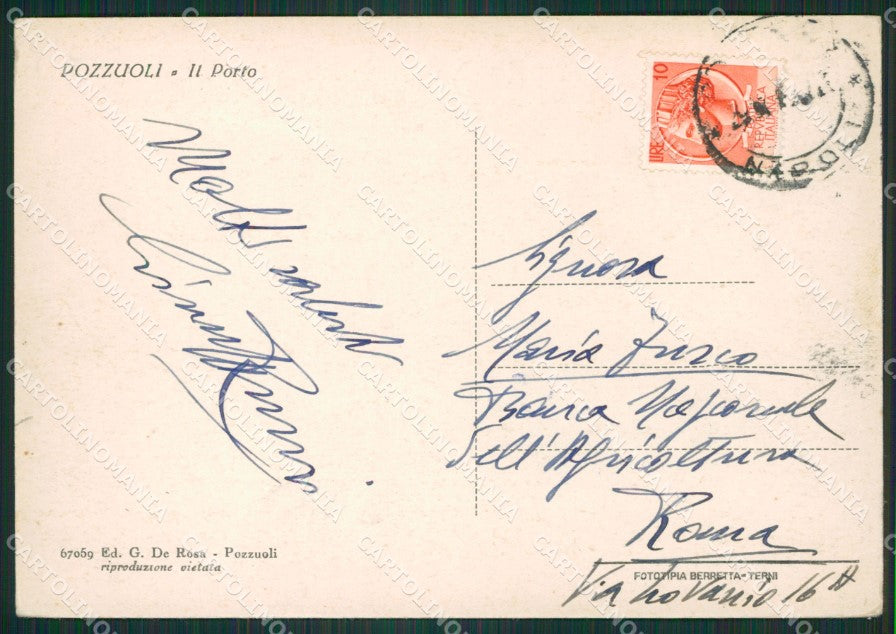 POZZUOLI - Il Porto
LIRE 10
REPVBBLICA
ITALIANA
NAPOLI
Molti saluti
Signora
Maria Fusco
Banca Nazionale
dell'Agricoltura
Roma
Via Lovanio 16 A
67059 Ed. G. De Rosa - Pozzuoli
riproduzione vietata
FOTOTIPIA BERRETTA - TERNI
CARTOLINOMANIA